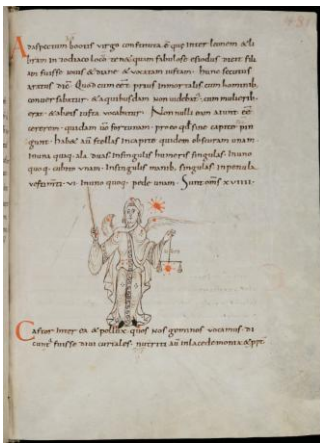 Ad aspectum bootis virgo confinivia. ē que inter lunem & li
bram in zodiaco loco tenet quam fabulose esiodus dicit fili
am fuisse iovis & diane & vocatam iustam. hunc secutus
aratus dicit. Quod cum cēt prius inmortalis cum hominib;
conversabatur & a quibusdam non videbat. cum mulierib;
erat & ab eis iusta vocabatur. Non nulli eam aiunt ēē
cererem. quidam vō fortunam. pro eo qđ sine capite pin
gunt. habet aū stellas in capite quidem obscuram unam.
in una quaq; ala duas. in singulis humeris singulas. in uno
quoq; cubito unam. in singulis manib; singulas. in penula
vestimti. vi. in uno quoq; pede unam. Sunt om̄s xviiii.
Castor inter ea & pollux. quos nos geminos vocamus. di
cunt fuisse dioscuriales. nutriti aū in lacedemonia &